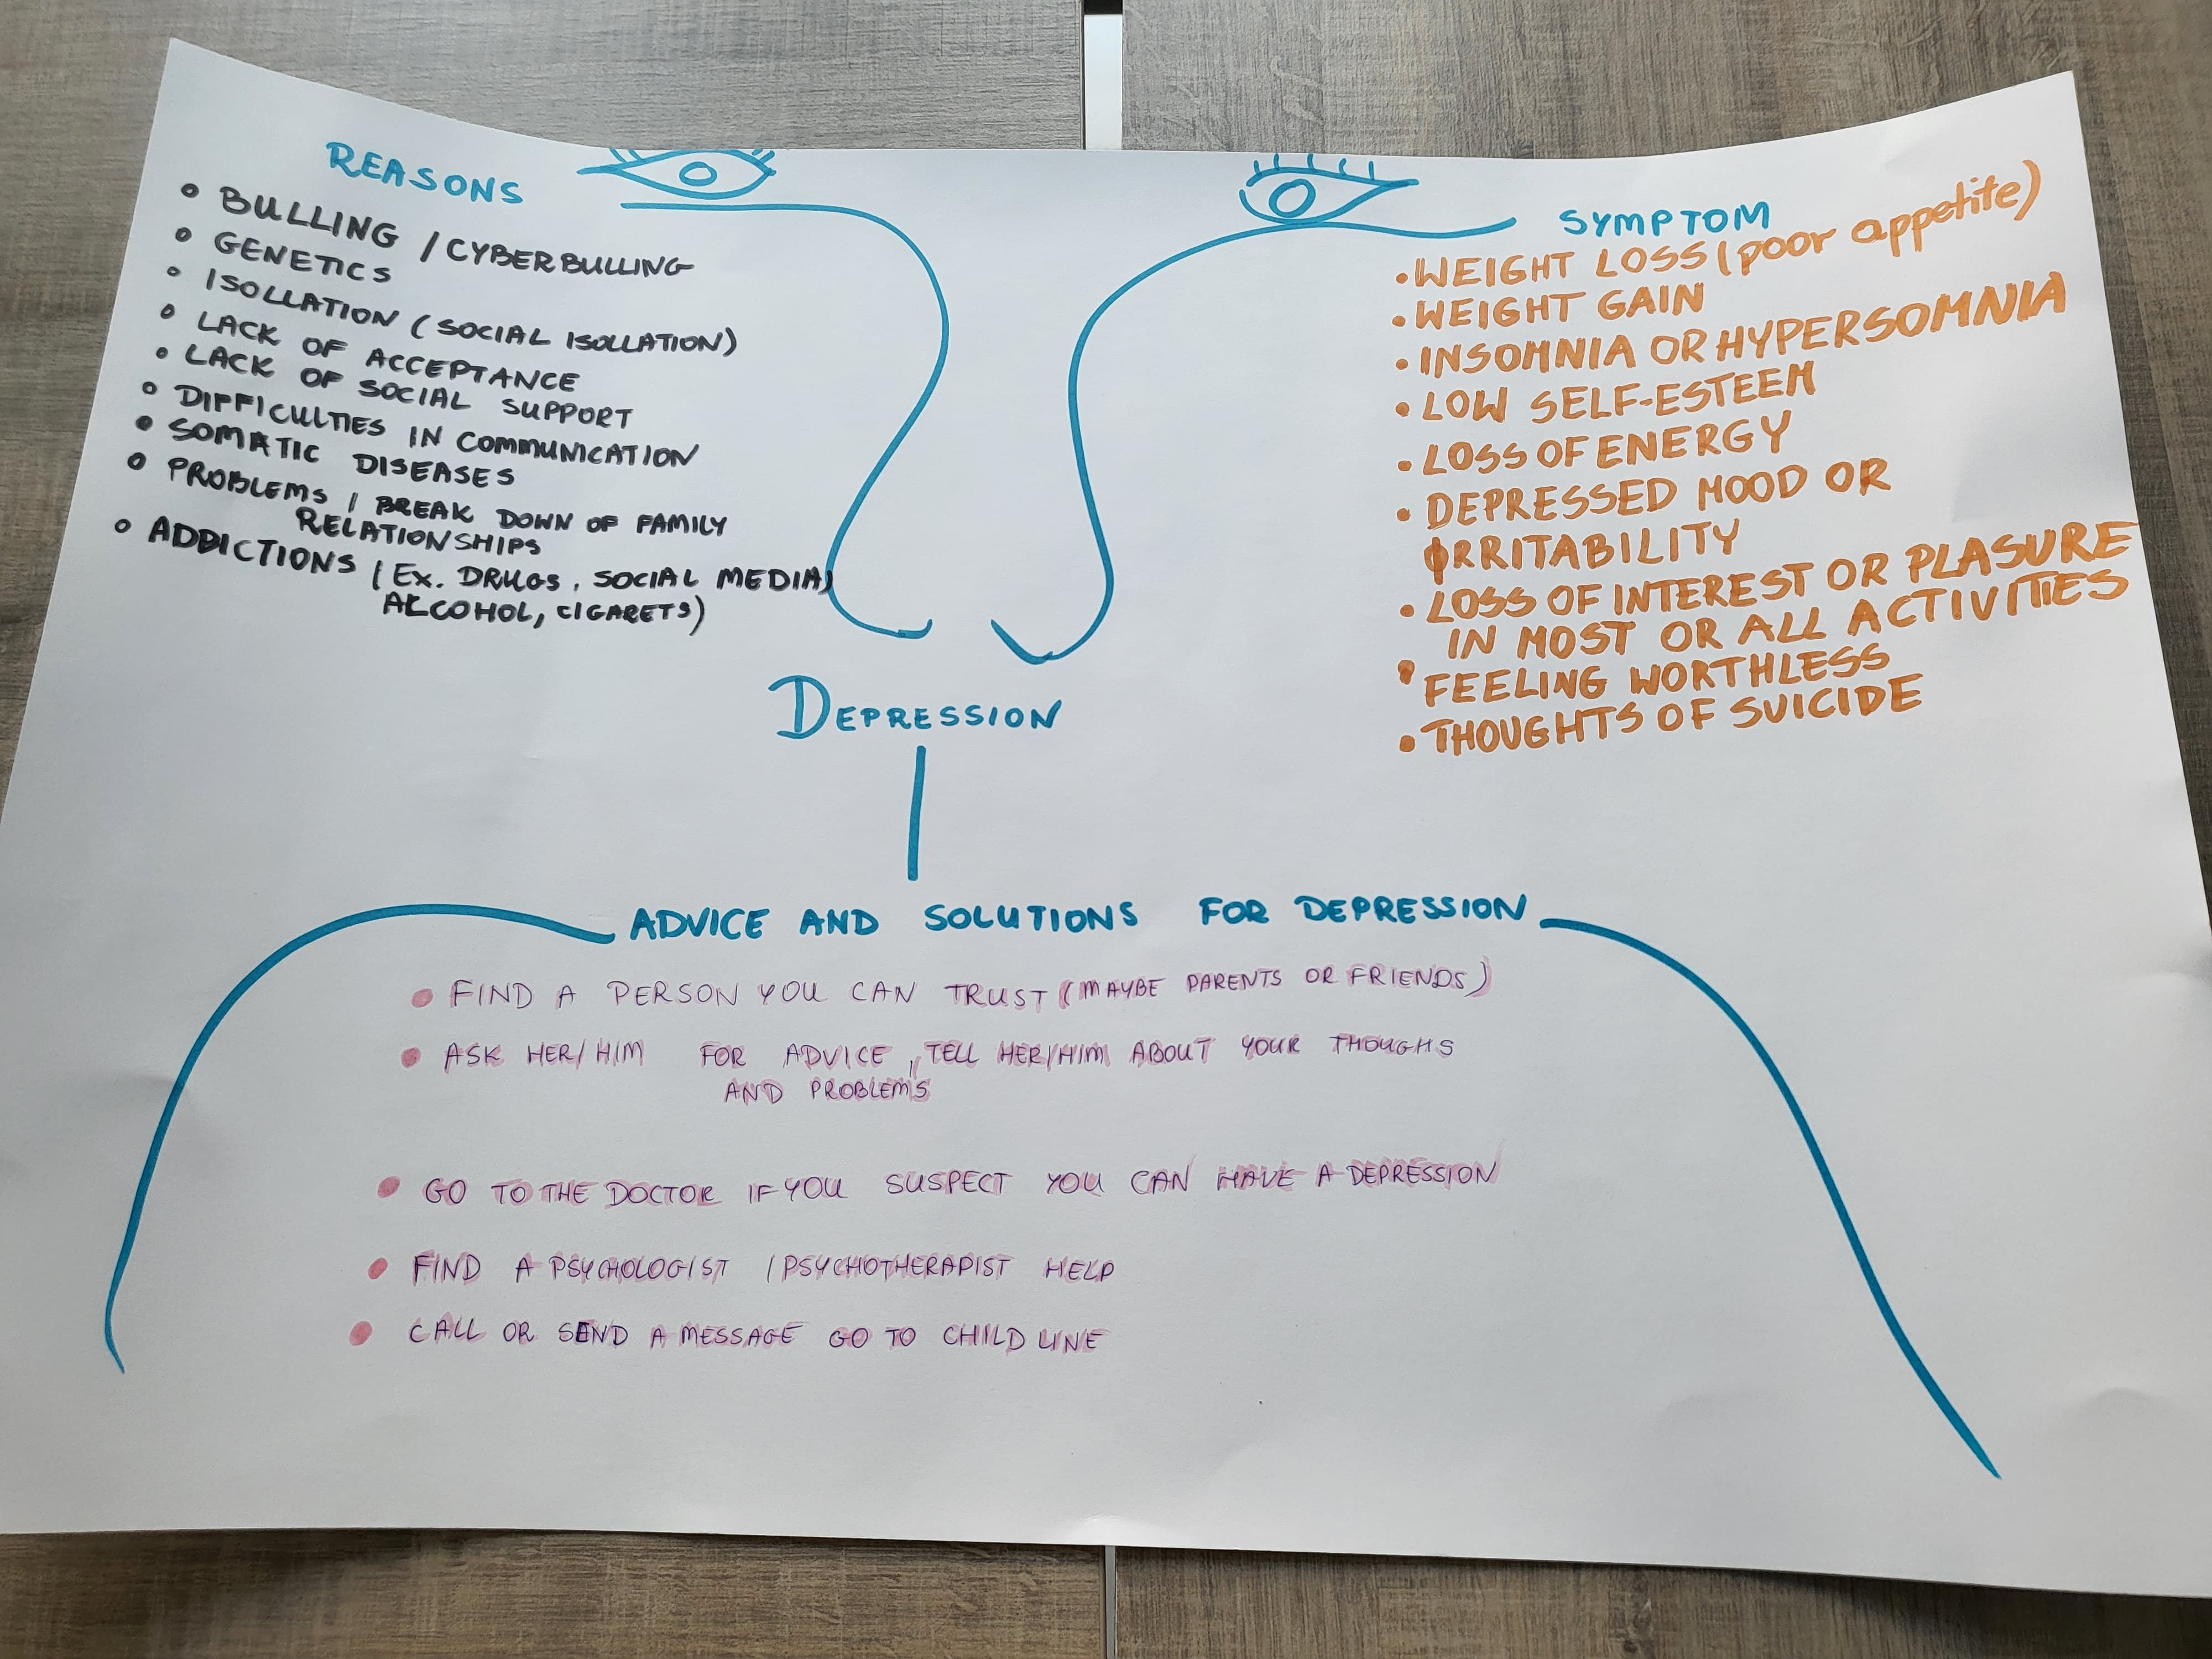 REASONS
• BULLING / CYBERBULLING
• GENETICS
• ISOLLATION (SOCIAL ISOLLATION)
• LACK OF ACCEPTANCE
• LACK OF SOCIAL SUPPORT
• DIFFICULTIES IN COMMUNICATION
• SOMATIC DISEASES
• PROBLEMS / BREAK DOWN OF FAMILY
RELATIONSHIPS
• ADDICTIONS (EX. DRUGS, SOCIAL MEDIA)
ALCOHOL, CIGARETS)
SYMPTOM
• WEIGHT LOSS (poor appetite)
• WEIGHT GAIN
• INSOMNIA OR HYPERSOMNIA
• LOW SELF-ESTEEM
• LOSS OF ENERGY
• DEPRESSED MOOD OR
IRRITABILITY
• LOSS OF INTEREST OR PLASURE
IN MOST OR ALL ACTIVITIES
• FEELING WORTHLESS
• THOUGHTS OF SUICIDE
DEPRESSION
ADVICE AND SOLUTIONS FOR DEPRESSION
• FIND A PERSON YOU CAN TRUST (MAYBE PARENTS OR FRIENDS)
• ASK HER/HIM FOR ADVICE, TELL HER/HIM ABOUT YOUR THOUGHS
AND PROBLEMS
• GO TO THE DOCTOR IF YOU SUSPECT YOU CAN HAVE A DEPRESSION
• FIND A PSYCHOLOGIST / PSYCHOTHERAPIST HELP
• CALL OR SEND A MESSAGE GO TO CHILD LINE